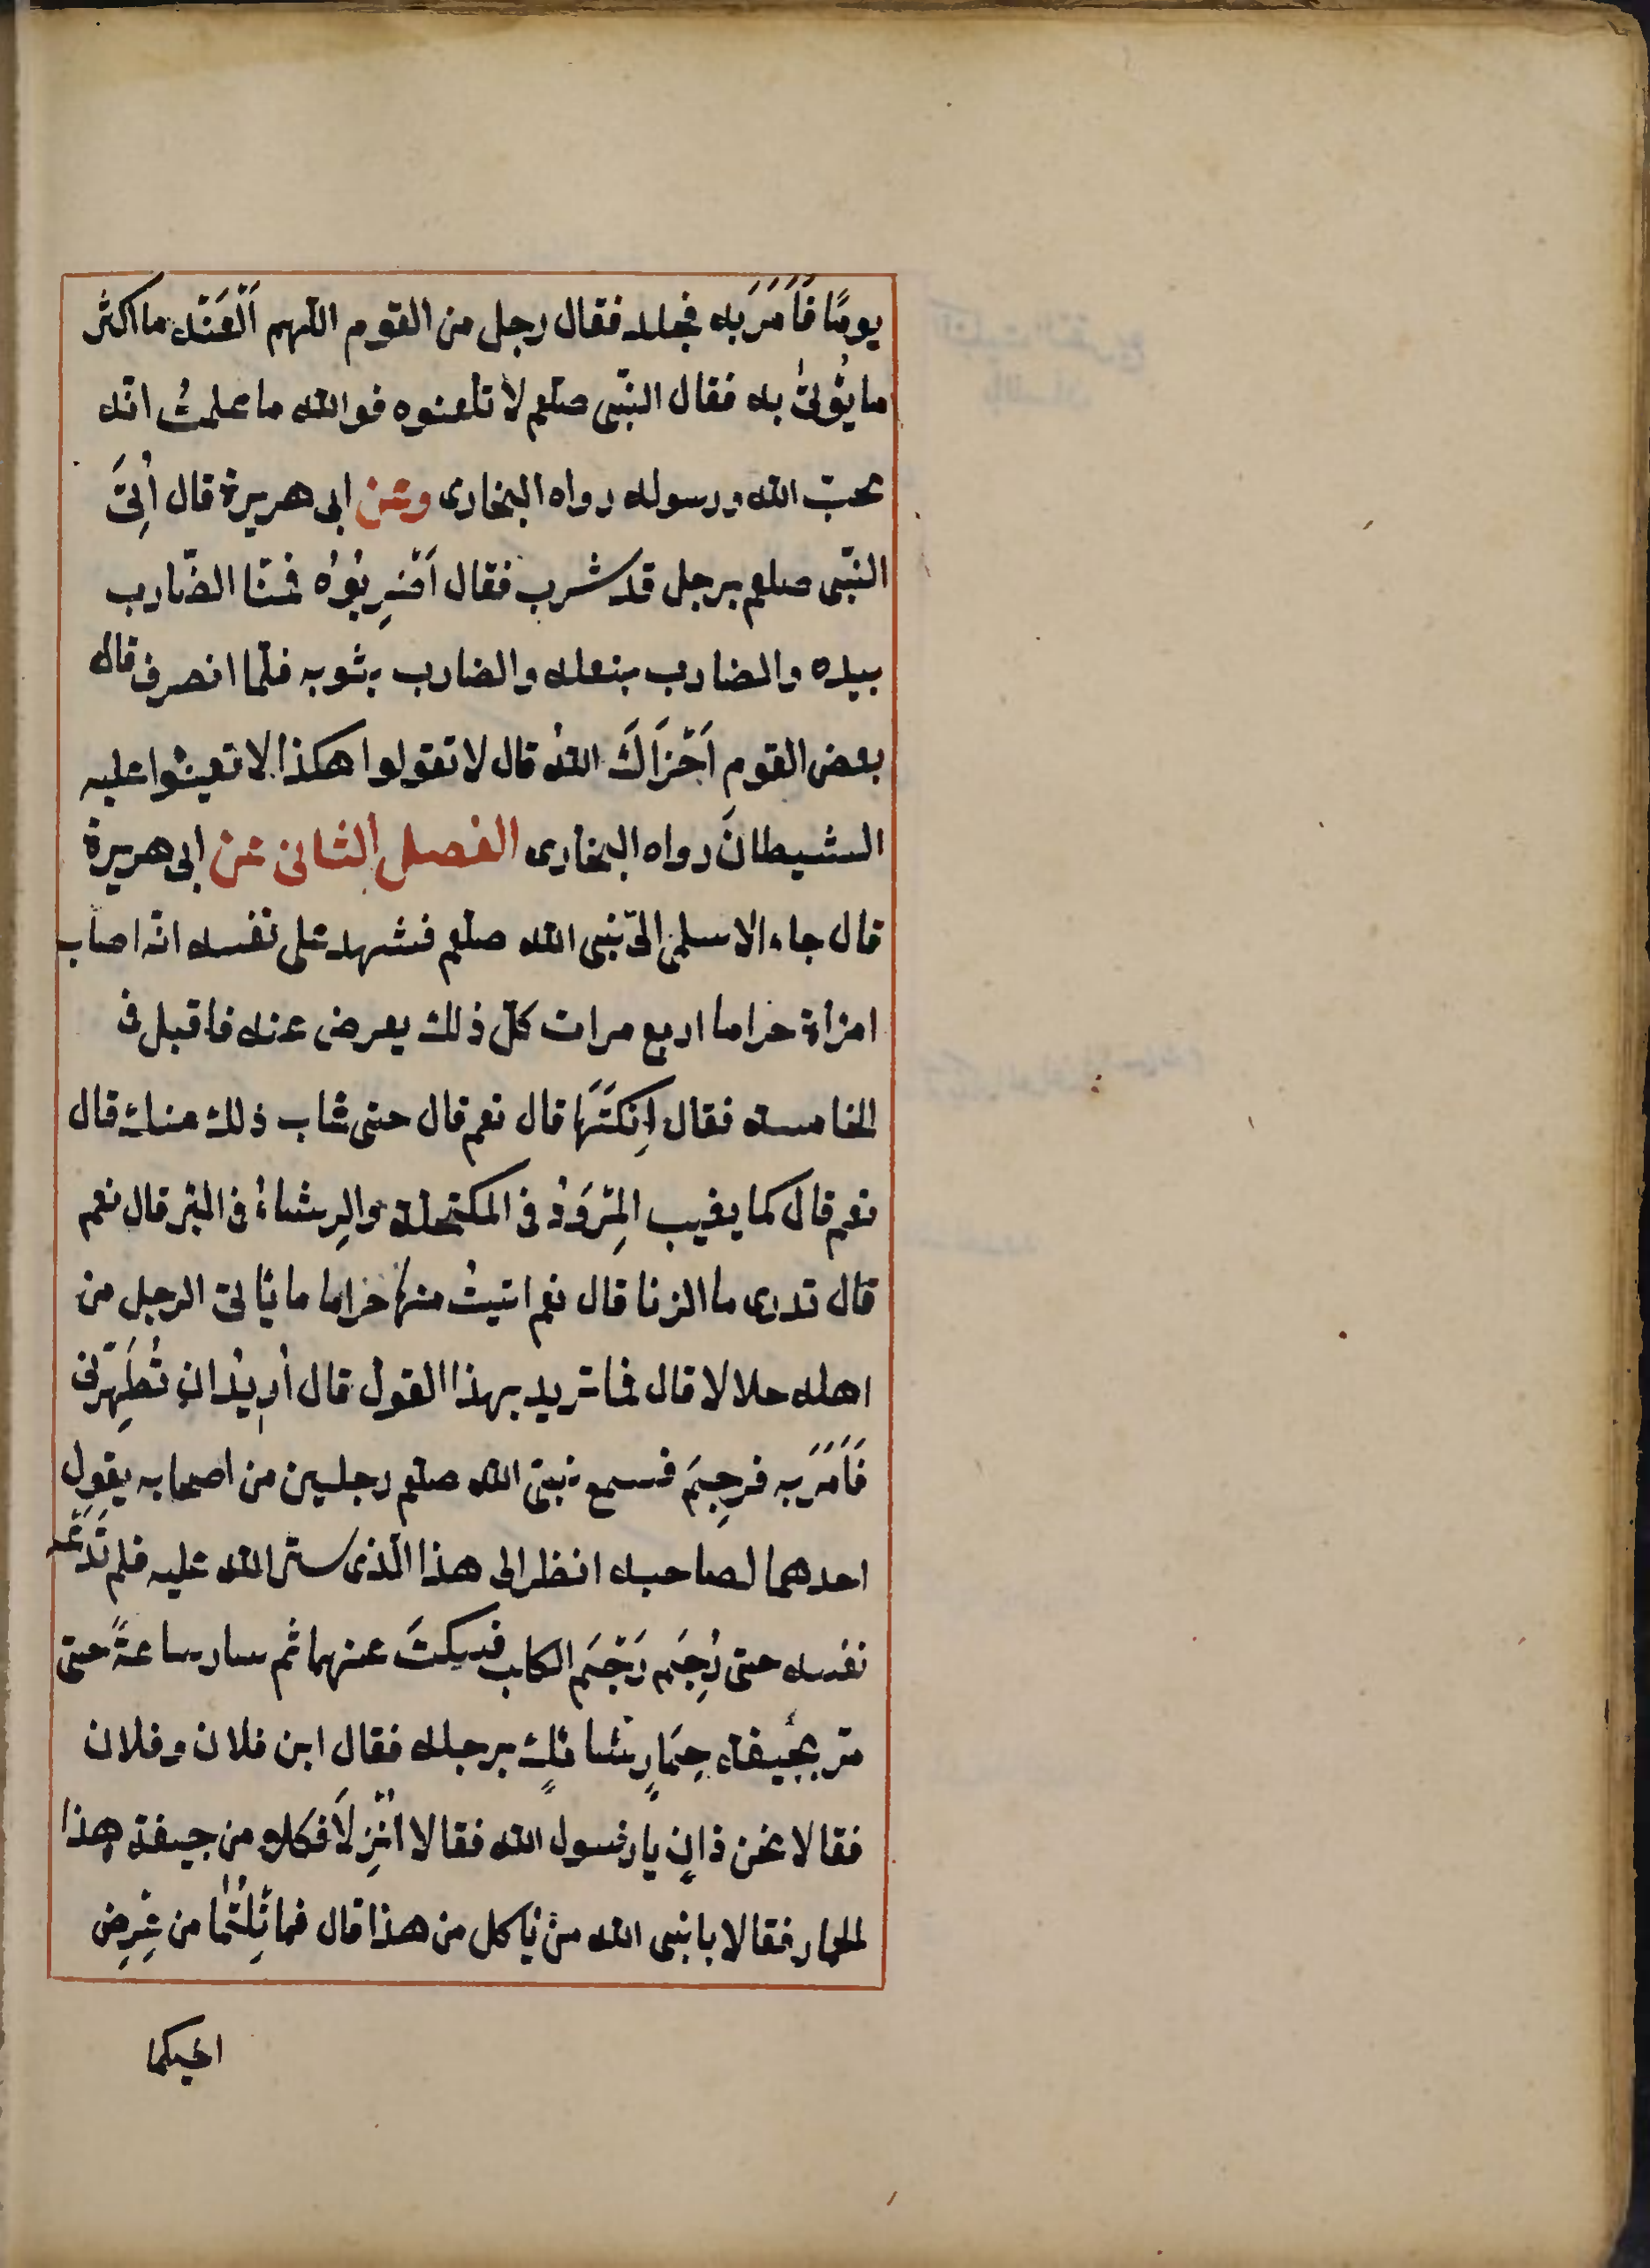 يومًا فَأَمَرَ به فجلد فقال رجل من القوم اللهم اَلْعَنْه ما اكثر
ما يُؤتىٰ به فقال النّبى صلعم لا تلعنوه فوالله ما علمتُ انه
يحبّ الله ورسوله رواه البخارى وعن ابى هريرة قال اُتِىَ
النّبى صلعم برجل قد شرب فقال اَضْرِبُوُه فمنّا الضّارب
بيده والضارب بنعله والضارب بثوبه فلمّا انصرف قال
بعض القوم اَخْزَاكَ اللهُ قال لا تقولوا هكذا لا تعينوا عليه
الشيطانَ رواه البخارى الفصل الثانى عن ابى هريرة
قال جاء الاسلمى الى نبى الله صلعم فشهد على نفسه انه اصاب
امرأة حراما اربع مرات كلّ ذلك يعرض عنه فاقبل فى
الخامسة فقال اَنِكتَهَا قال نعم قال حتى غاب ذلك منك قال
نعم قال كما يغيب المِرْوَدُ فى المكتحلة والرِشاءُ فى البئر قال نعم
قال تدرى ما الزنا قال نعم اتيتُ منها حراما ما يأتى الرجل من
اهله حلالا قال فما تريد بهذا القول قال أُريدُ ان تُطَهِّرَنى
فَأَمَرَ به فرجِمَ فسمع نبىّ الله صلعم رجلين من اصحابه يقول
احدهما لصاحبه انظر الى هذا الّذى ستر الله عليه فلم تَدَعْه
نفسه حتى رُجِمَ رَجْمَ الكلب فسكتَ عنهما ثم سار ساعةً حتى
مرّ بجيفة حِمَارٍ شائلٍ برجله فقال اين فلان وفلان
فقالا نحن ذانِ يا رسول الله فقالا اَنْزِلَا فكلا من جيفة هذا
الحمار فقالا يا نبى الله من يأكل من هذا قال فما نِلْتُمَا من عِرضِ
اخيكما